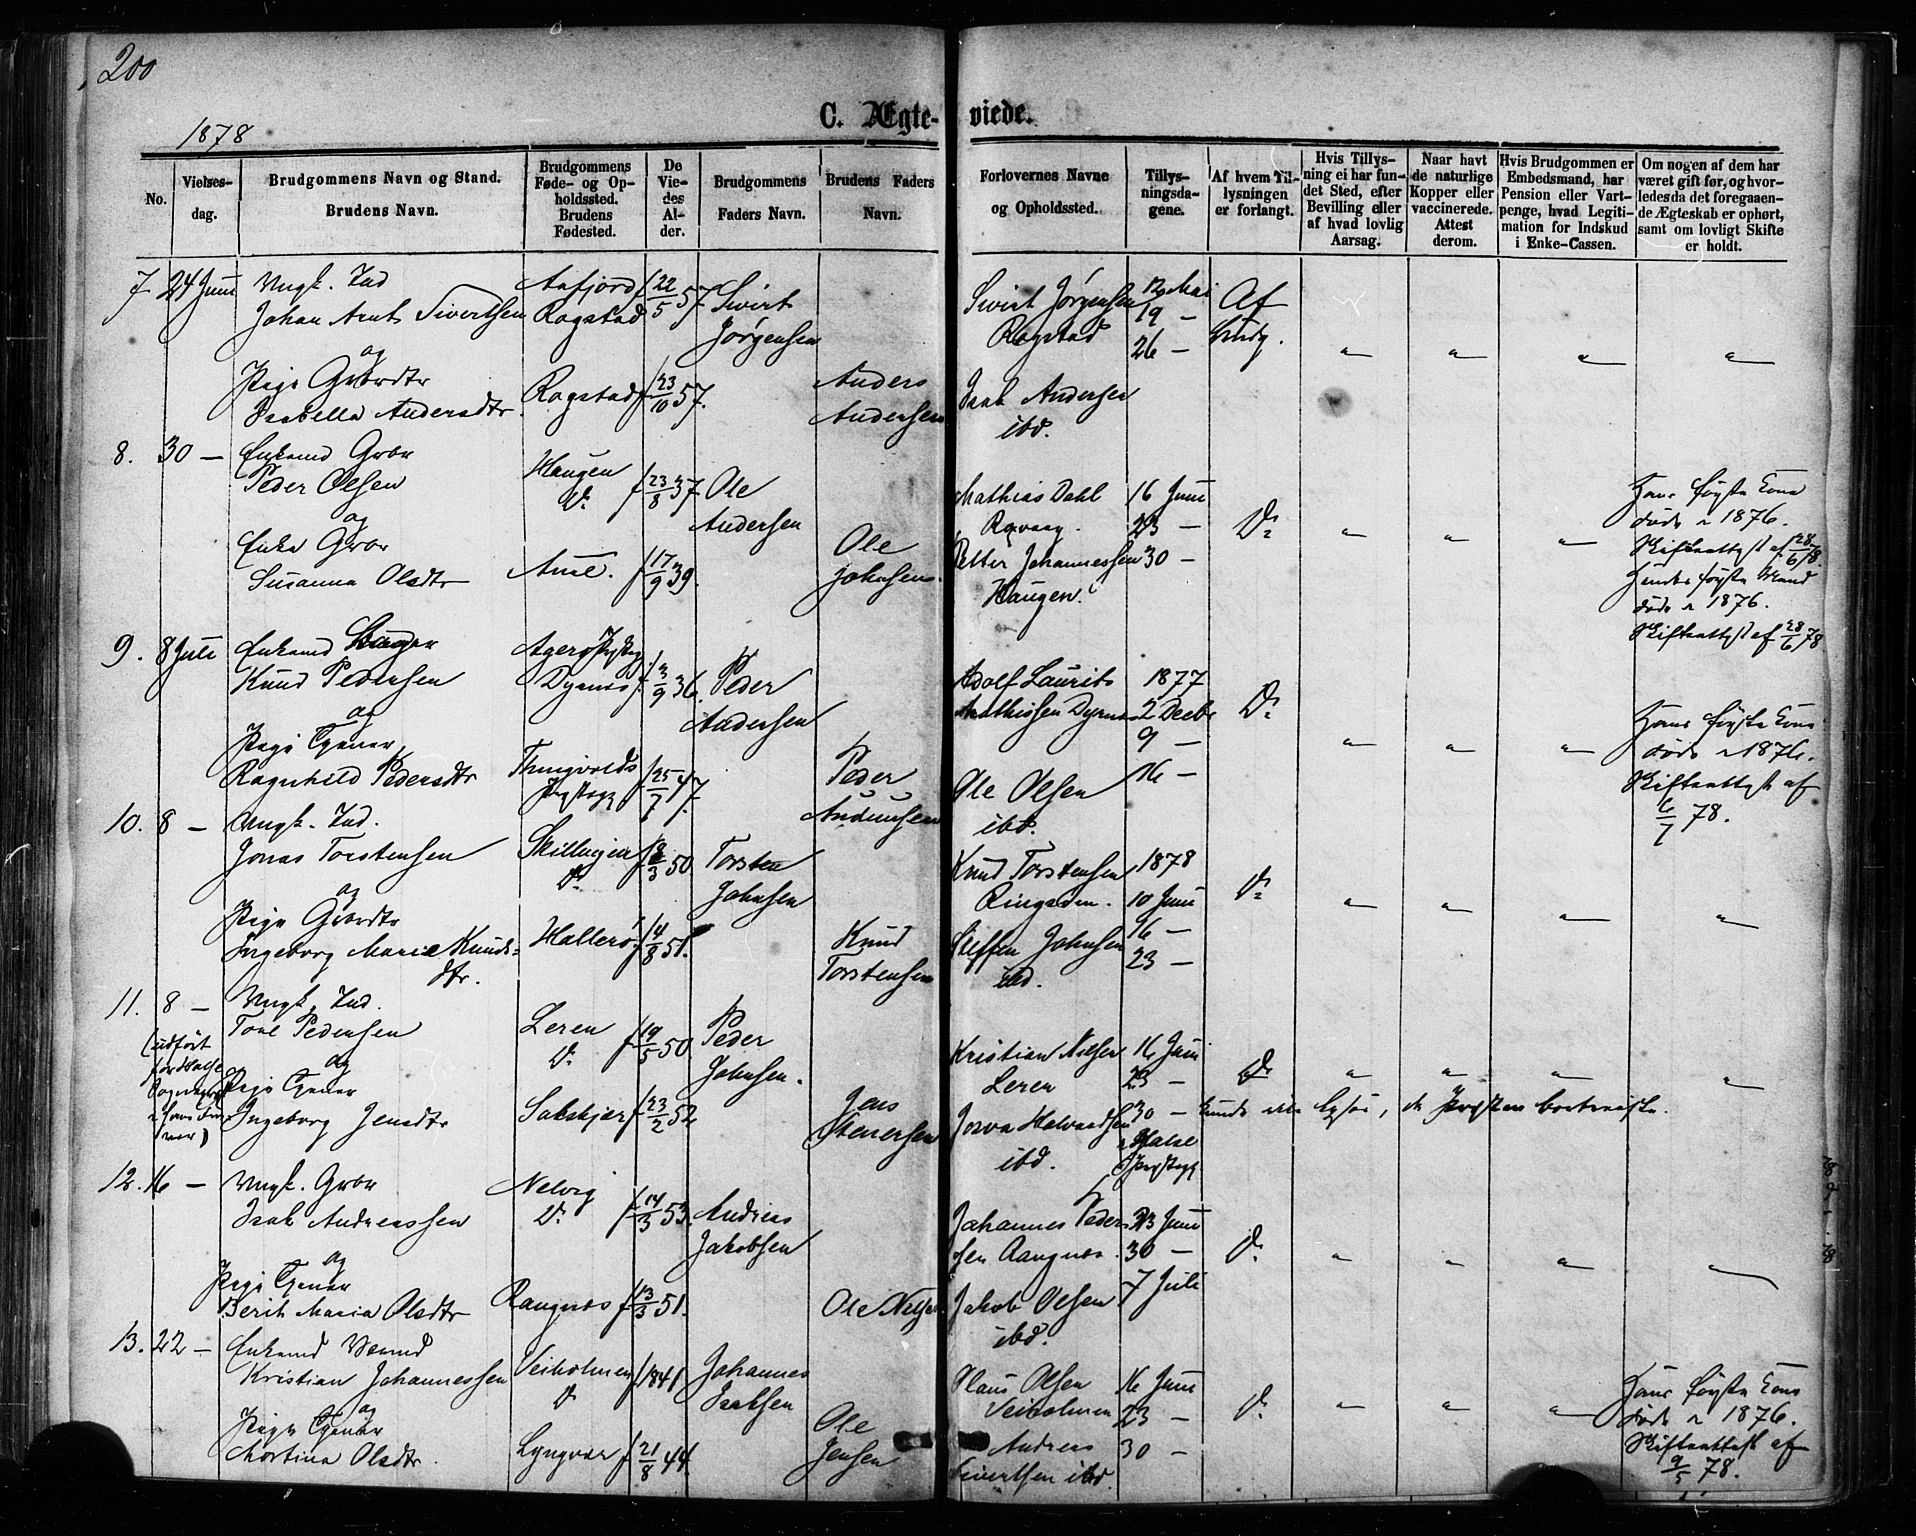 200
1878
C. Ægte-viede.
No.
Vielses-
dag.
Brudgommens Navn og Stand.
Brudens Navn.
Brudgommens
Føde- og Op-
holdssted.
Brudens
Fødested.
De
Vie-
des
Al-
der.
Brudgommens
Faders Navn.
Brudens Faders
Navn.
Forlovernes Navne
og Opholdssted.
Tillys-
ningsda-
gene.
Af hvem Til-
lysningen
er forlangt.
Hvis Tillys-
ning ei har fun-
det Sted, efter
Bevilling eller
af hvad lovlig
Aarsag.
Naar havt
de naturlige
Kopper eller
vaccinerede.
Attest
derom.
Hvis Brudgommen er
Embedsmand, har
Pension eller Vart-
penge, hvad Legiti-
mation for Indskud
i Enke-Cassen.
Om nogen af dem har
været gift før, og hvor-
ledes da det foregaaen-
de Ægteskab er ophørt,
samt om lovligt Skifte
er holdt.
7 24 Juni Ungk. Ind
Johan Arnt Sivertsen
Aafjord
Rogstad
f 22/5 57.
Sivert
Jørgensen
Sivert Jørgensen
Rogstad
12 Mai
19 —
26 —
Af
Brudg.
og
Pige Grbrdtr
Isabella Andersdtr.
Rogstad
f 23/10 57.
Anders
Andersen
Isak Andersen
ibd.
8. 30 — Enkemd Grbr
Peder Olsen
Haugen
Do
f 23/8 37.
Ole
Andersen
Mathias Dahl
Petter Johannessen
Haugen.
16 Juni
23 —
30 —
Do
Hans første Kone
døde i 1876.
Skifteattest af 28/6 78.
Hendes første Mand
døde i 1876.
Skifteattest af 28/6 78
og
Enke Grbr
Susanna Olsdtr
Aune.
f 17/9 39.
Ole
Johnsen.
9. 8 Juli Enkemd
Knud Pedersen
Dyrnes
f 3/9 36.
Peder
Andersen
Adolf Laurits
Mathissen Dyrnes
1877
2 Decbr
9 —
16 —
Do
Hans første Kone
døde i 1876.
Skifteattest af
6/7 78.
og
Pige Tjener
Ragnhild Pedersdtr
Thingvolds
Præstegj
f 25/7 47.
Peder
Ole Olsen
ibd.
10. 8 — Ungk. Ind.
Jonas Torstensen
Skillingen
Do
f 8/3 50
Torsten
Johnsen
Knud Torstensen
1878
10 Juni
16 —
23 —
Do
og
Pige Grbrdtr
Ingeborg Maria Knuds-
dtr.
Hallerø
f 4/8 51.
Knud
Torstensen
Steffen Johnsen
ibd.
11. 8 — Ungk. Ind.
Tore Pedersen
Leren
Do
f 19/5 50
Peder
Johnsen.
Kristian Nilsen
Leren
16 Juni
23 —
30 —
Do
(udført
for Halse
og
Pige Tjener
Ingeborg Jensdtr
f 23/2 52
Jens
Halse
Præstegj
ibd.
12. 16 — Ungk. Grbr
Isak Andreassen
Nelvig
Do
f 14/3 53.
Andreas
Jakobsen
Johannes Peder-
sen
23 Juni
30 —
7 Juli
Do
og
Pige Tjener
Berit Maria Olsdtr
f 13/3 51.
Ole Nilsen
Jakob Olsen
ibd.
13. 22 — Enkemd
Kristian Johannessen
Veiholmen
Do
f 1841
Johannes
Isaksen
Klaus Olsen
Veiholmen
16 Juni
23 —
30 —
Do
Hans første Kone
døde i 1876.
Skifteattest af
9/5 78.
og
Pige Tjener
Martina Olsdtr.
Lyngvær
f 21/8 44.
Ole
Jensen
Andreas
Sivertsen ibd